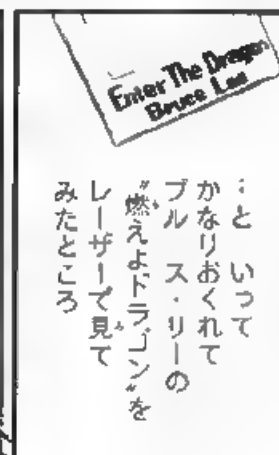 Enter The Dragon
Bruce Lee
…と いって
かなりおくれて
ブル ス・リーの
〝燃えよドラゴン〟を
レーザーで見て
みたところ